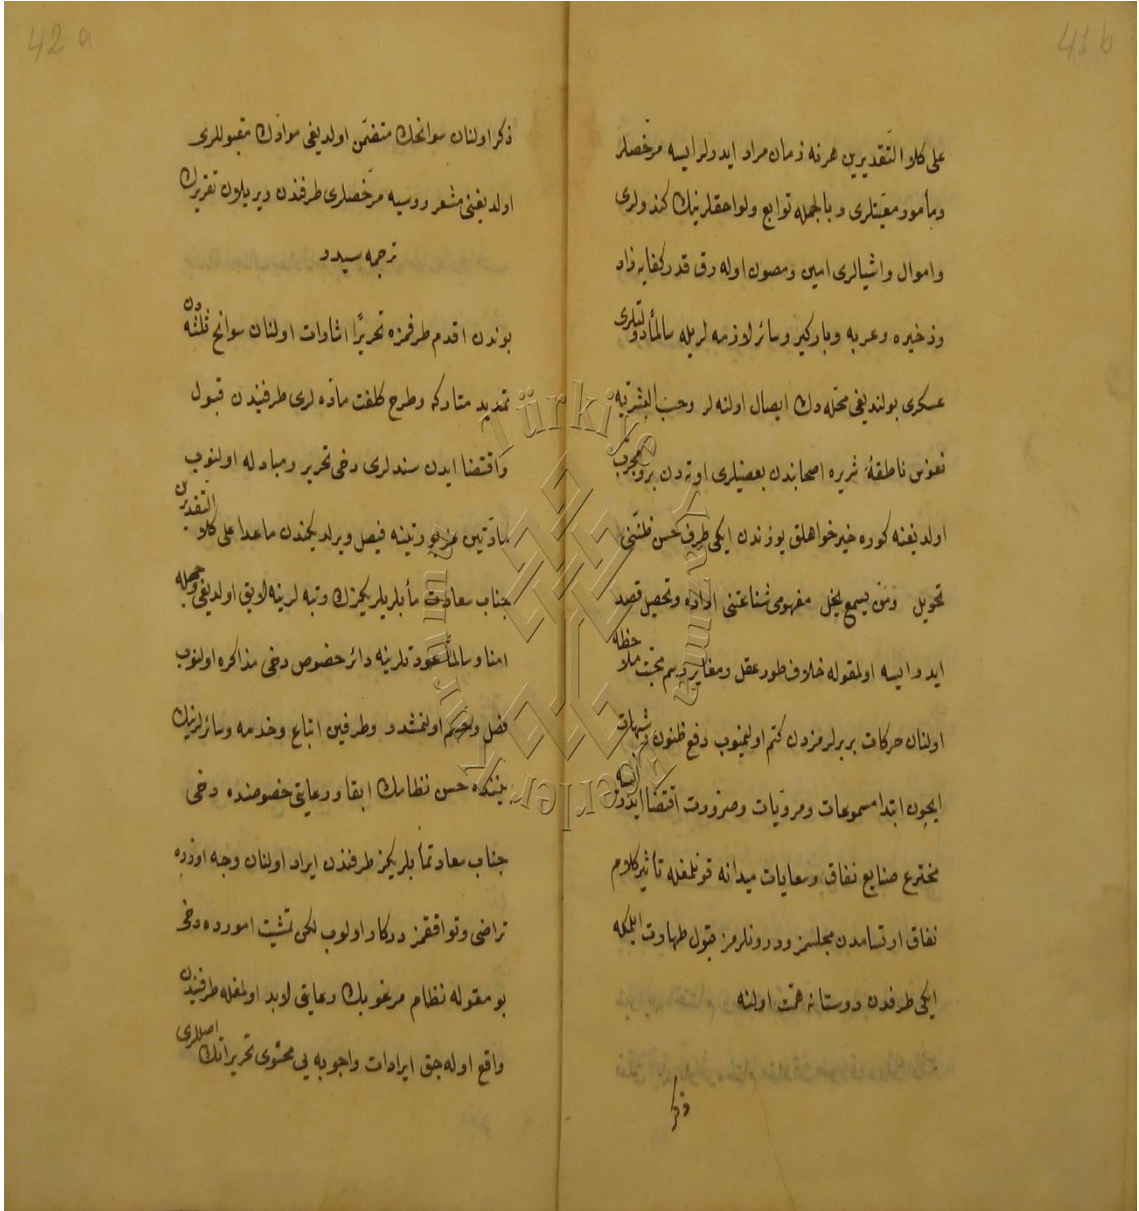 41 b
على كلا التقديرين هرنه زمان مراد ايدرلرايسه مرخصلر
ومأمور معيتلرى وبالجمله توابع ولواحقلرينك كندولرى
واموال واشيالرى امين ومصون اوله رق قدر كفايه زاد
وذخيره وعربه وباركير وسائر لازمه لريله سالمًا دولتلرى
عسكرى بولنديغى محله دك ايصال اولنه لر وحسب البشريه
نفوس ناطقهٔ شريره اصحابندن بعضيلرى اوته دن برو مجرب
اولديغنه كوره خيرخواهلق يوزندن ايكى طرف حسن ظننى
تحويل ومن يسمع يخل مفهومى شناعتنى اراده وتحصيل قصد
ايدرايسه اولمقوله خلاف طور عقل ومغاير رسم محبت ملاحظه
اولنان حركات بربرلرمزدن كتم اولنميوب دفع ظنون وشبهات
ايچون ابتدا مسموعات ومرويات وضرورت اقتضا ايدرايسه
مخترع صنايع نفاق وسعايات ميدانه قونلمغله تأثير كلام
نفاق ارتسامدن مجلسمز ودرونلرمز قبول طهارت ايلمكه
ايكى طرفدن دوستانه همت اولنه
ذكر
42 a
ذكر اولنان سوانحك متضمن اولديغى موادك مقبوللرى
اولديغنى مشعر روسيه مرخصلرى طرفندن ويريلان تقريرك
ترجمه سيدر
بوندن اقدم طرفمزه تحريرًا اشارات اولنان سوانح ثلثه دن
تمديد متاركه وطرح كلفت ماده لرى طرفيندن قبول
واقتضا ايدن سندلرى دخى تحرير ومبادله اولنوب
مادتين مزبورتينه فيصل ويرلديكندن ماعدا على كلا التقديرين
جناب سعادت مأبلريكزك رتبه لرينه لايق اولديغى وجهله
امنا وسالمًا عودتلرينه دائر خصوص دخى مذاكره اولنوب
فصل وحسم اولنمشدر وطرفين اتباع وخدمه وسائرلرينك
بيننده حسن نظامك ابقا ورعايتى خصوصنده دخى
جناب سعادتمأبلريكز طرفندن ايراد اولنان وجه اوزره
تراضى وتوافقمز دركار اولوب لكن تمشيت امورده دخى
بو مقوله نظام مرغوبك رعايتى لابد اولمغله طرفيندن
واقع اوله جق ايرادات واجوبه يى محتوى تحريراتك اصللرى
Türkiye Yazma Eserler Kurumu